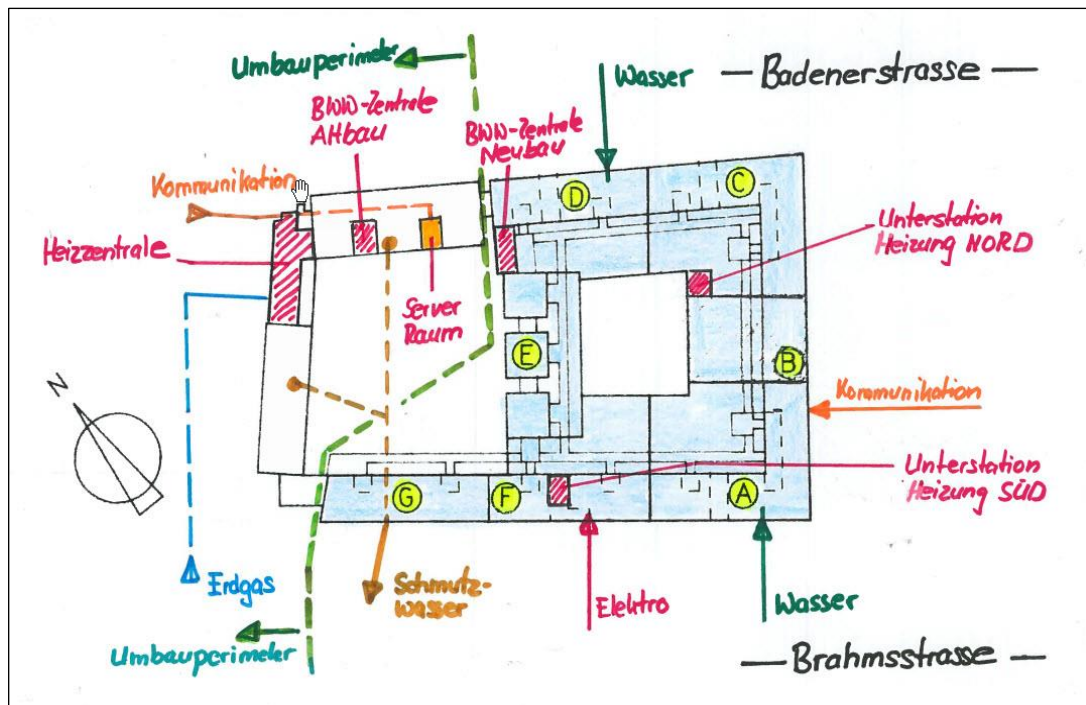 Umbauperimeter
Wasser
— Badenerstrasse —
BWW-Zentrale
Altbau
BWW-Zentrale
Neubau
Kommunikation
D
C
Heizzentrale
Unterstation
Heizung NORD
Server
Raum
E
B
N
Kommunikation
Unterstation
Heizung SÜD
G
F
A
Erdgas
Schmutz-
wasser
Elektro
Wasser
Umbauperimeter
— Brahmsstrasse —